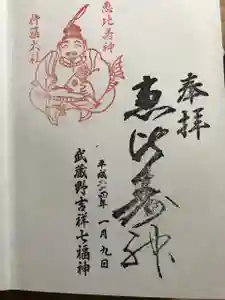 奉拝
恵比寿神
平成 四年 一月九日
武蔵野吉祥七福神
恵比寿神
杵築大社